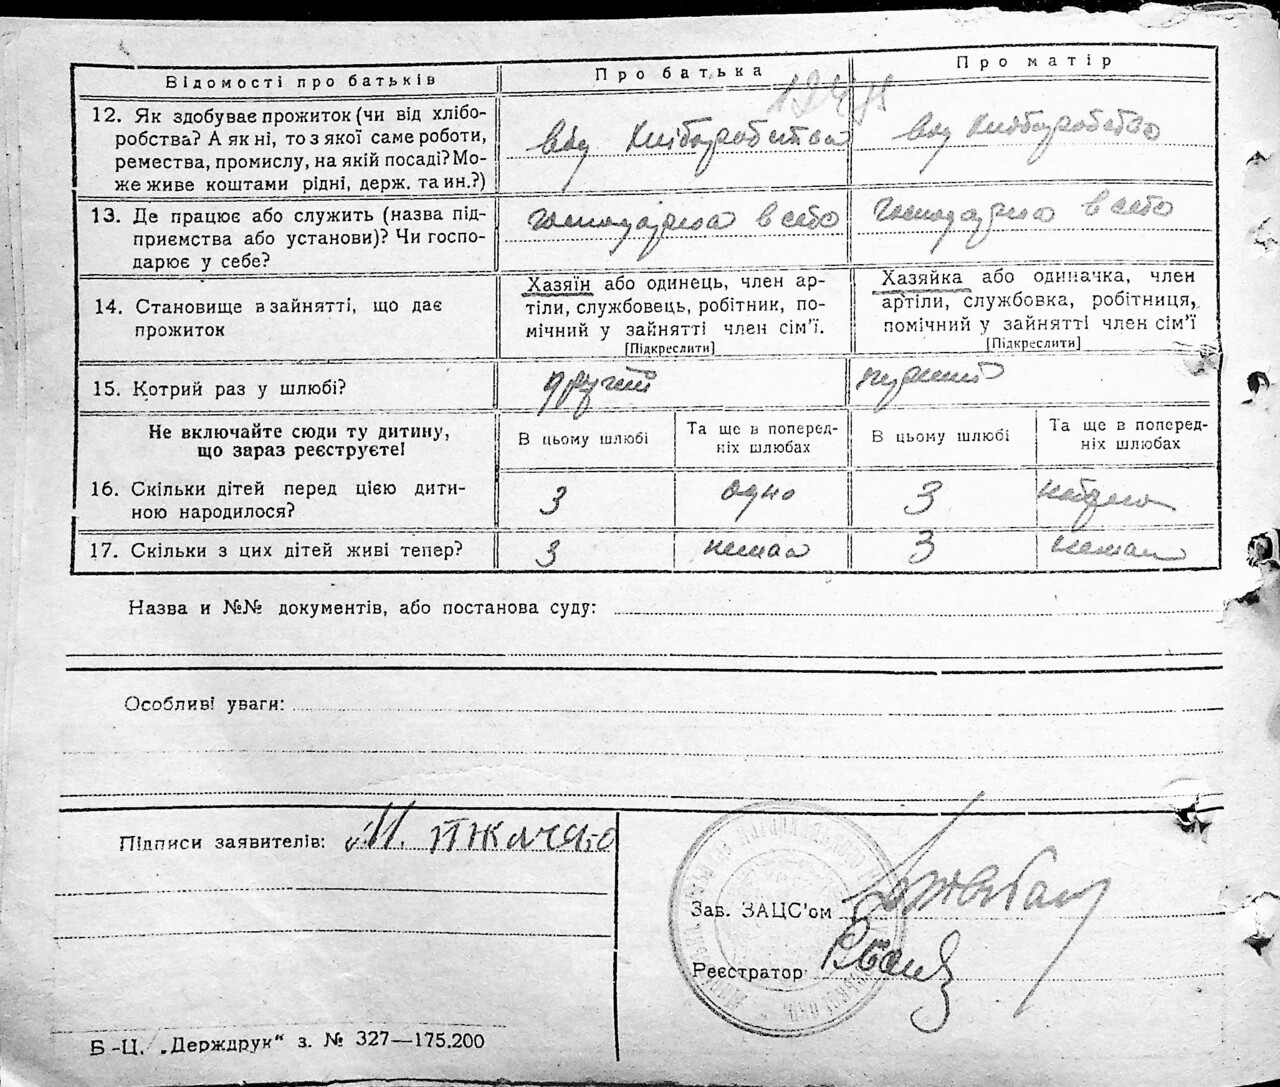 Відомості про батьків
Про батька
Про матір
12. Як здобуває прожиток (чи від хлібо-
робства? А як ні, то з якої саме роботи,
ремества, промислу, на якій посаді? Мо-
же живе коштами рідні, держ. та ин.?)
від хліборобства
від хліборобства
13. Де працює або служить (назва під-
приємства або установи)? Чи госпо-
дарює у себе?
в себе
в себе
14. Становище в зайнятті, що дає
прожиток
Хазяїн або одинець, член ар-
тіли, службовець, робітник, по-
мічний у зайнятті член сім'ї.
[Підкреслити]
Хазяйка або одиначка, член
артіли, службовка, робітниця,
помічний у зайнятті член сім'ї
[Підкреслити]
15. Котрий раз у шлюбі?
другий
перший
Не включайте сюди ту дитину,
що зараз реєструєте!
В цьому шлюбі
Та ще в поперед-
ніх шлюбах
В цьому шлюбі
Та ще в поперед-
ніх шлюбах
16. Скільки дітей перед цією дити-
ною народилося?
3
одно
3
17. Скільки з цих дітей живі тепер?
3
немає
3
немає
Назва и №№ документів, або постанова суду:
Особливі уваги:
Підписи заявителів:
Зав. ЗАЦС'ом
Реєстратор
Б-Ц. „Держдрук" з. № 327—175.200